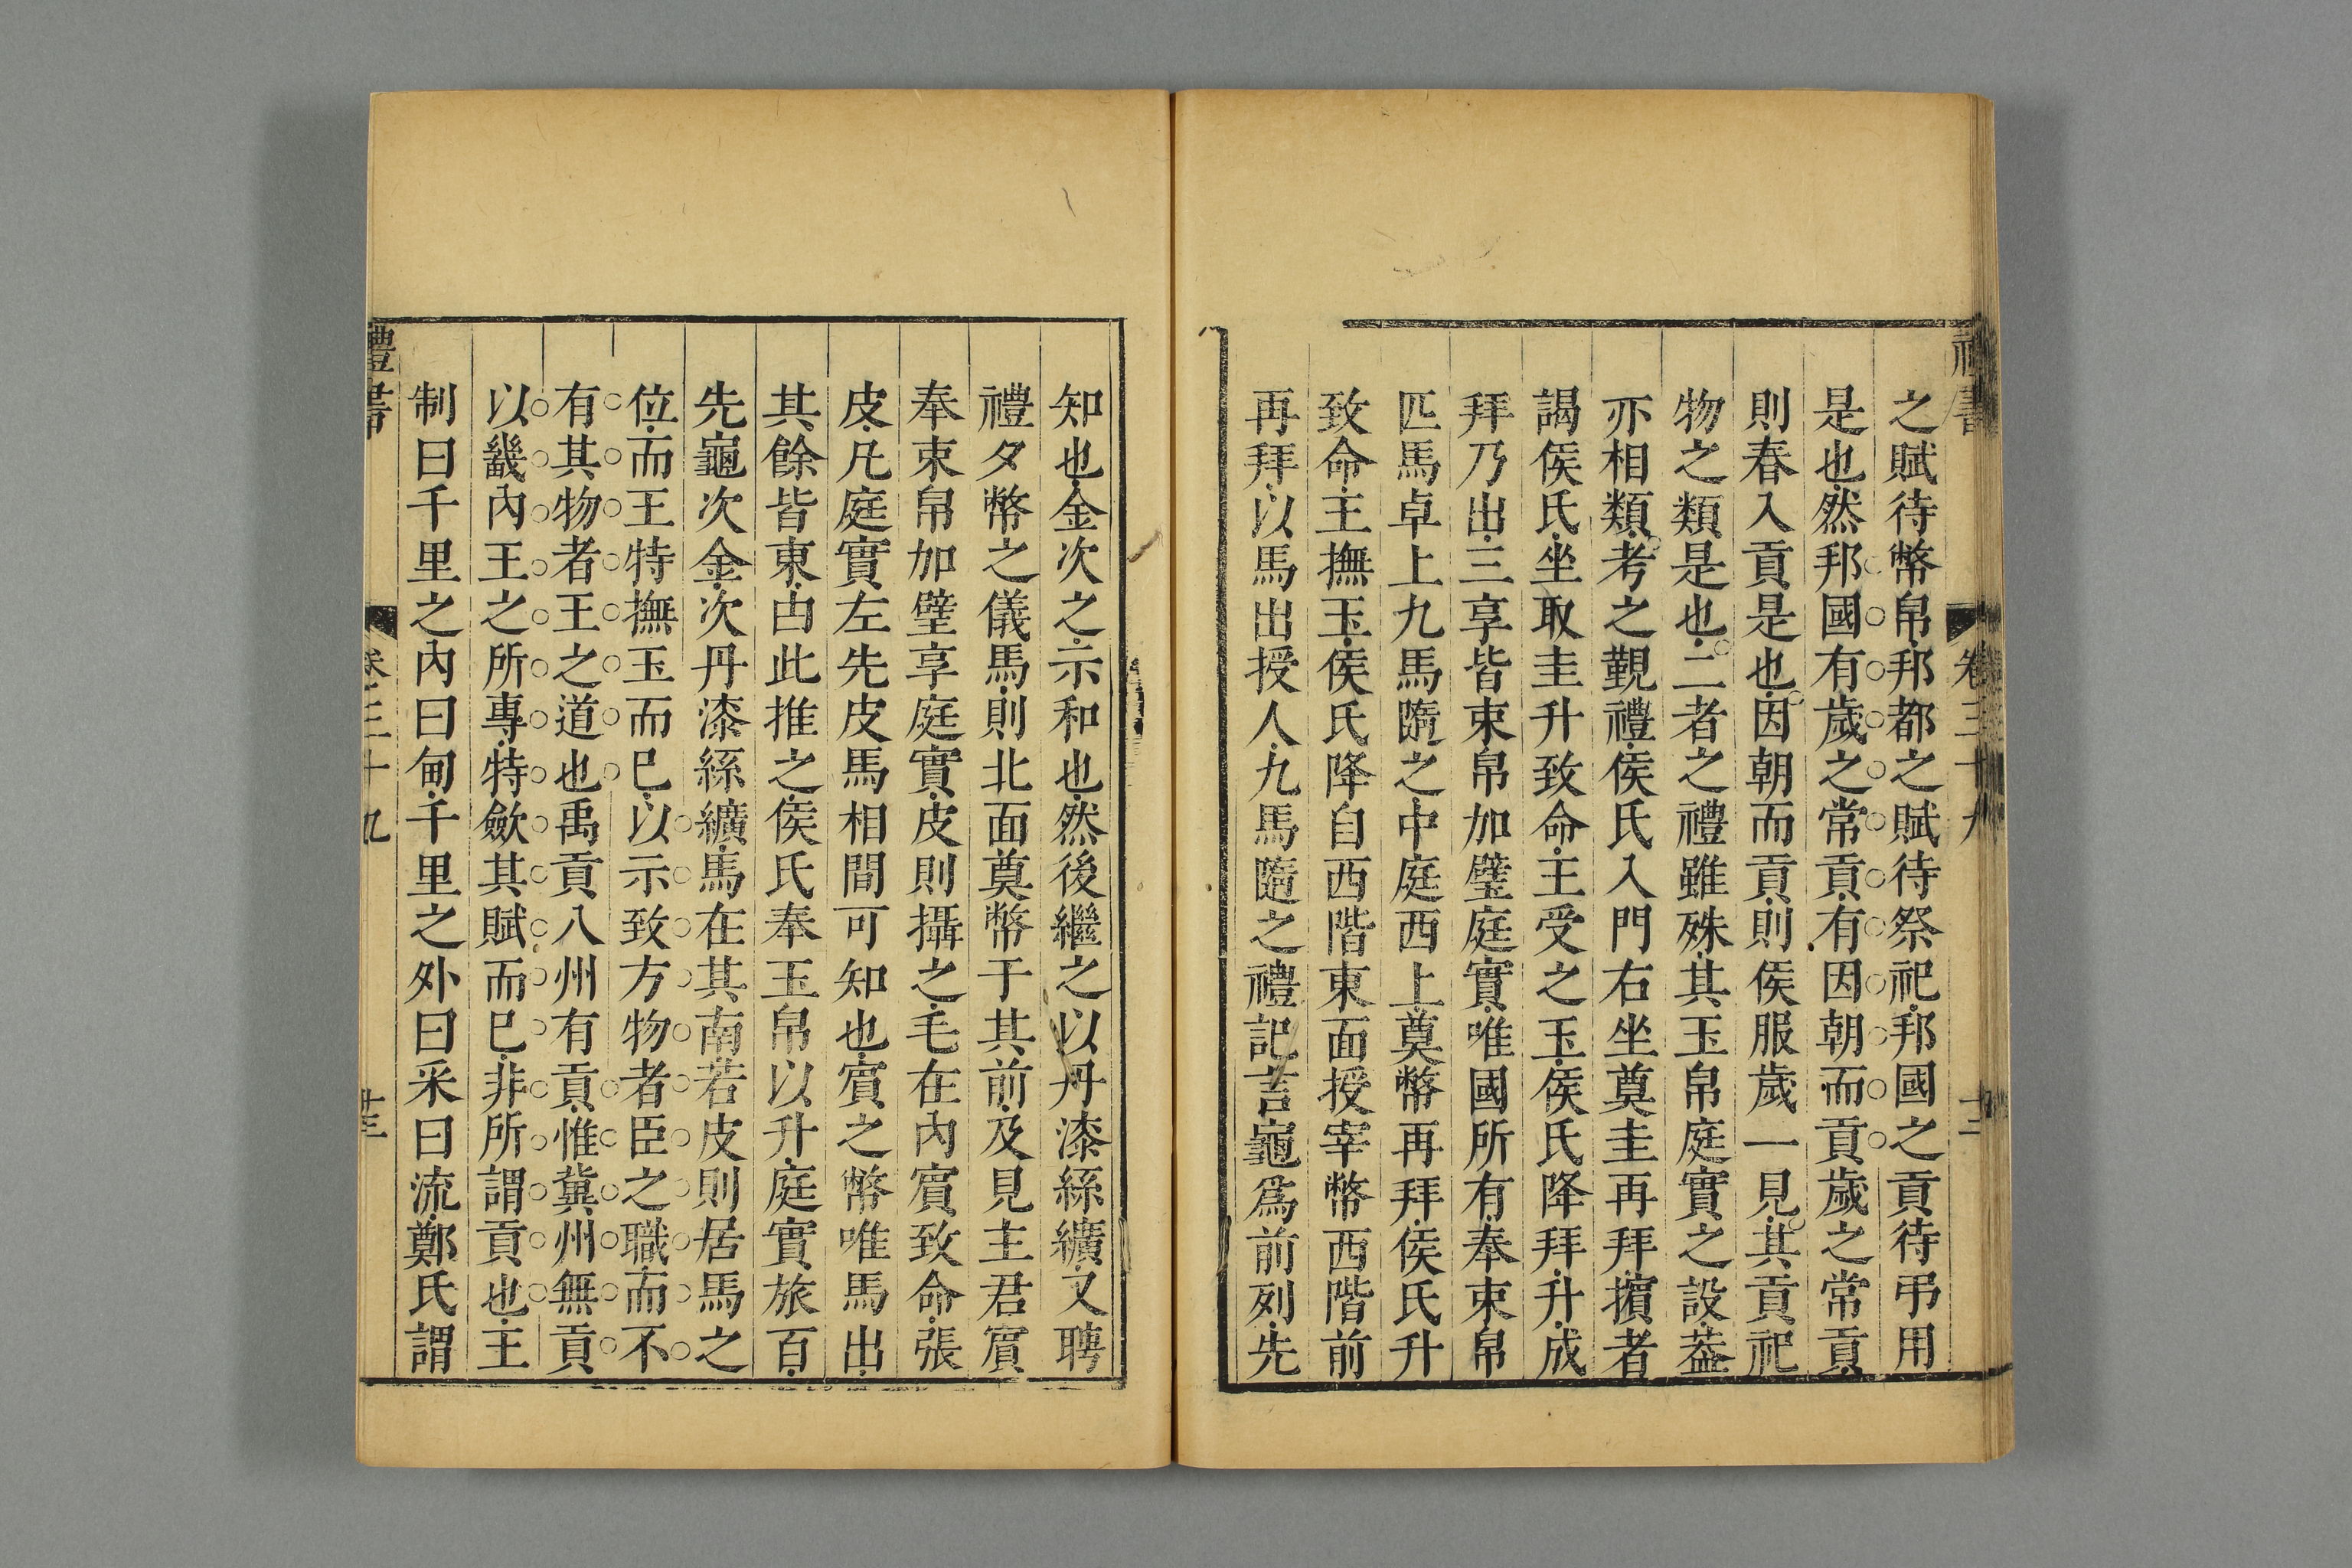 禮書 卷三十九 十二
之賦待幣帛邦都之賦待祭祀邦國之貢待弔用
是也然邦國有歲之常貢有因朝而貢歲之常貢
則春入貢是也因朝而貢則侯服歲一見其貢祀
物之類是也二者之禮雖殊其玉帛庭實之設葢
亦相類考之覲禮侯氏入門右坐奠圭再拜擯者
謁侯氏坐取圭升致命王受之玉侯氏降拜升成
拜乃出三享皆束帛加璧庭實唯國所有奉束帛
匹馬卓上九馬隨之中庭西上奠幣再拜侯氏升
致命王撫玉侯氏降自西階東面授宰幣西階前
再拜以馬出授人九馬隨之禮記言龜爲前列先
知也金次之示和也然後繼之以丹漆絲纊又聘
禮夕幣之儀馬則北面奠幣于其前及見主君賔
奉束帛加璧享庭實皮則攝之毛在內賔致命張
皮凡庭實左先皮馬相間可知也賔之幣唯馬出
其餘皆東由此推之侯氏奉玉帛以升庭實旅百
先龜次金次丹漆絲纊馬在其南若皮則居馬之
位而王特撫玉而巳以示致方物者臣之職而不
有其物者王之道也禹貢八州有貢惟冀州無貢
以畿內王之所專特斂其賦而巳非所謂貢也王
制曰千里之內曰甸千里之外曰采曰流鄭氏謂
禮書 卷三十九 十三